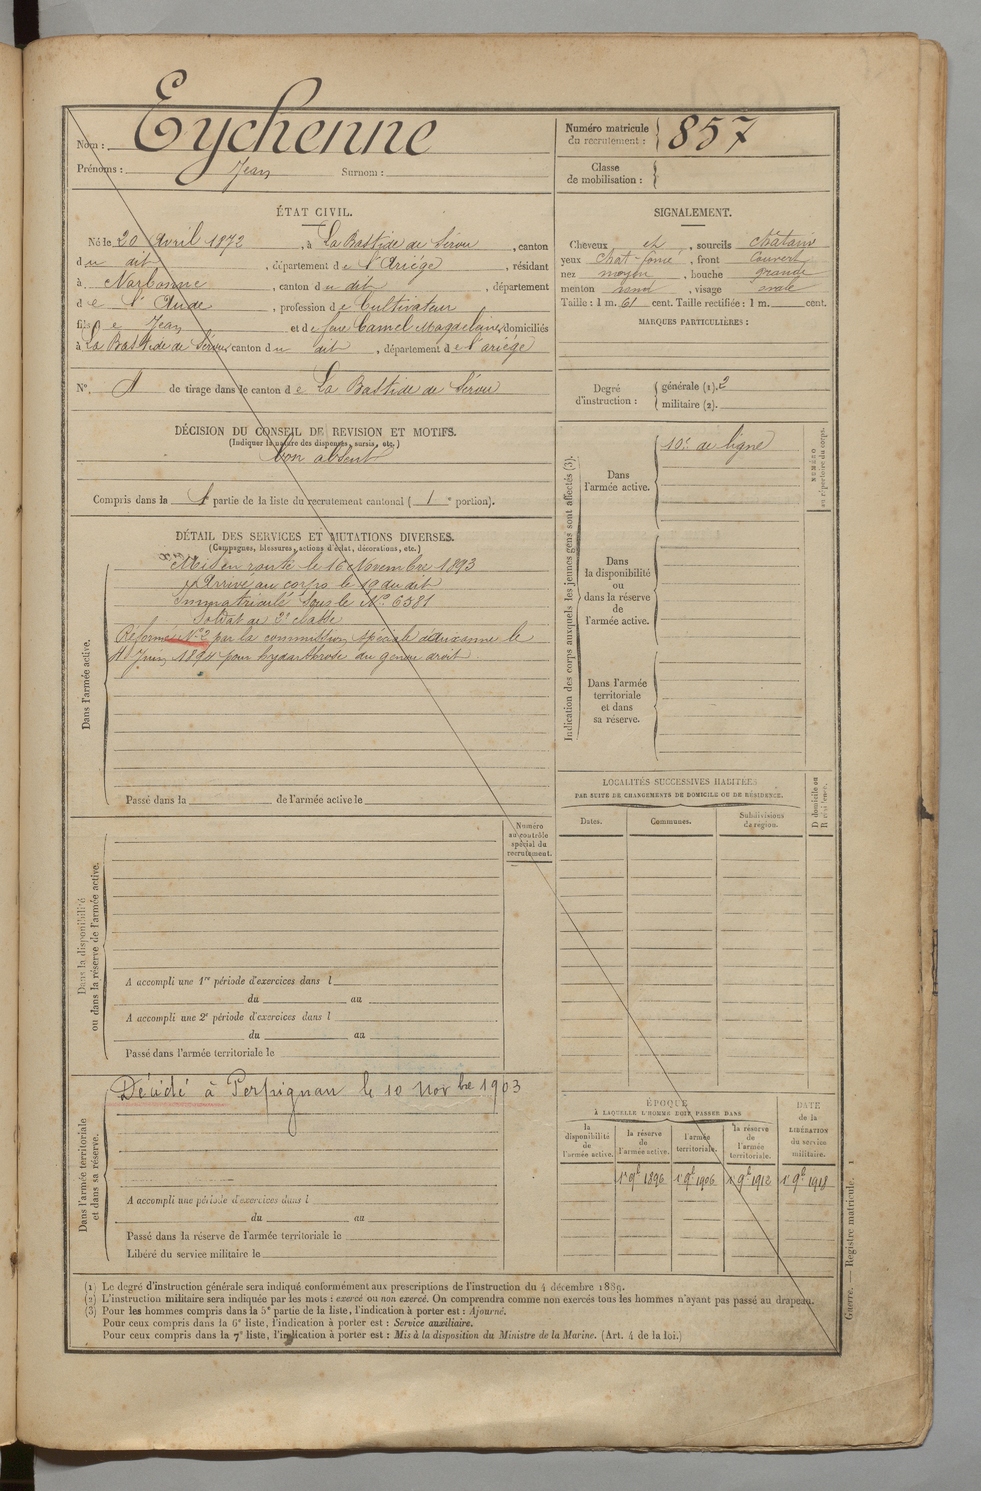 Nom : Eychenne
Prénoms : Jean Surnom :
Numéro matricule du recrutement : 857
Classe de mobilisation :
ÉTAT CIVIL.
Né le 20 Avril 1872, à La Bastide de Sérou, canton
du dit, département de l'Ariège, résidant
à Narbonne, canton du dit, département
de l'Aude, profession de Cultivateur
fils de Jean et de feue Camel Magdelaine, domiciliés
à La Bastide de Sérou, canton du dit, département de l'ariège
N°. de tirage dans le canton de La Bastide de Sérou
DÉCISION DU CONSEIL DE REVISION ET MOTIFS.
(Indiquer la nature des dispenses, sursis, etc.)
bon absent
Compris dans la partie de la liste du recrutement cantonal ( 1e portion).
DÉTAIL DES SERVICES ET MUTATIONS DIVERSES.
(Campagnes, blessures, actions d'éclat, décorations, etc.)
Dans l'armée active.
Mis en route le 16 Novembre 1893
Arrivé au corps le 19 du dit
Immatriculé sous le N° 6381
Soldat de 2e classe
Réformé N° 2 par la commission spéciale d'auxonne le
Juin 1894 pour hydarthrose du genou droit
Passé dans la de l'armée active le
Numéro au contrôle spécial du recrutement.
Dans la disponibilité ou dans la réserve de l'armée active.
A accompli une 1re période d'exercices dans l
du au
A accompli une 2e période d'exercices dans l
du au
Passé dans l'armée territoriale le
Dans l'armée territoriale et dans sa réserve.
Décédé à Perpignan le 10 Novbre 1903
A accompli une période d'exercices dans l
du au
Passé dans la réserve de l'armée territoriale le
Libéré du service militaire le
SIGNALEMENT.
Cheveux et, sourcils châtain
yeux chat-foncé, front couvert
nez moyen, bouche grande
menton rond, visage ovale
Taille : 1 m. 61 cent. Taille rectifiée : 1 m. cent.
MARQUES PARTICULIÈRES :
Degré d'instruction :
générale (1). 2
militaire (2).
Indication des corps auxquels les jeunes gens sont affectés (3).
NUMÉRO au répertoire du corps.
Dans l'armée active.
10e de ligne
Dans la disponibilité ou dans la réserve de l'armée active.
Dans l'armée territoriale et dans sa réserve.
LOCALITÉS SUCCESSIVES HABITÉES
PAR SUITE DE CHANGEMENTS DE DOMICILE OU DE RÉSIDENCE.
Dates. Communes. Subdivisions de région. D domicile ou R résidence.
ÉPOQUE
À LAQUELLE L'HOMME DOIT PASSER DANS
DATE de la LIBÉRATION du service militaire.
la disponibilité de l'armée active.
la réserve de l'armée active.
l'armée territoriale.
la réserve de l'armée territoriale.
1er 9b 1896 1er 9b 1906 1er 9b 1912 1er 9b 1918
(1) Le degré d'instruction générale sera indiqué conformément aux prescriptions de l'instruction du 4 décembre 1889.
(2) L'instruction militaire sera indiquée par les mots : exercé ou non exercé. On comprendra comme non exercés tous les hommes n'ayant pas passé au drapeau.
(3) Pour les hommes compris dans la 5e partie de la liste, l'indication à porter est : Ajourné.
Pour ceux compris dans la 6e liste, l'indication à porter est : Service auxiliaire.
Pour ceux compris dans la 7e liste, l'indication à porter est : Mis à la disposition du Ministre de la Marine. (Art. 4 de la loi.)
Guerre. — Registre matricule. 1